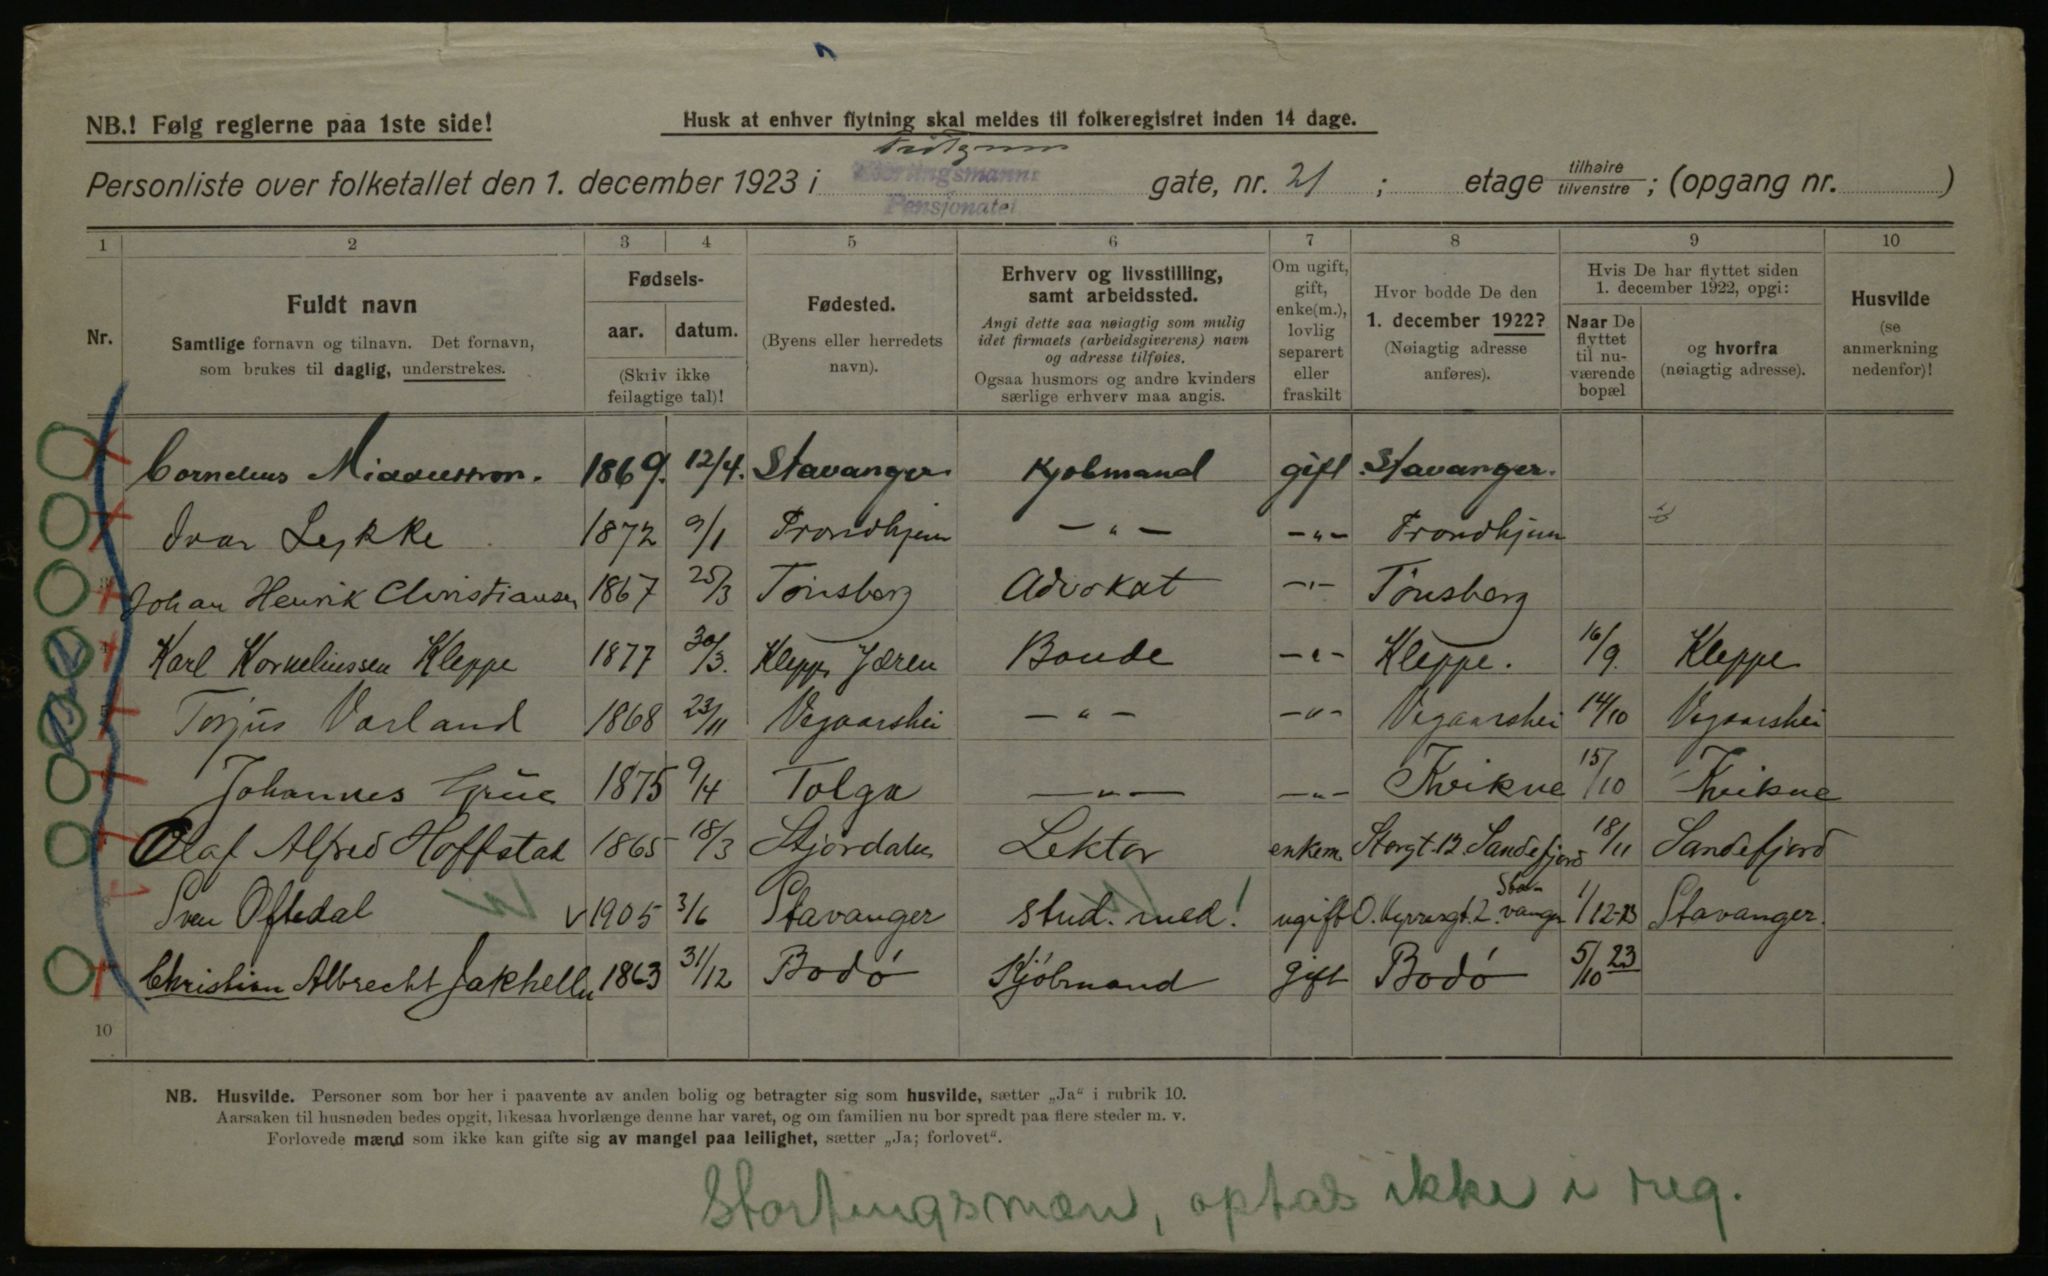 NB.! Følg reglerne paa 1ste side!
Husk at enhver flytning skal meldes til folkeregistret inden 14 dage.
Personliste over folketallet den 1. december 1923 i Stortingsmanns Pensjonatet gate, nr. 21 ; etage tilhøire/tilvenstre ; (opgang nr. )
1 2 3 4 5 6 7 8 9 10
Nr.
Fuldt navn
Samtlige fornavn og tilnavn. Det fornavn,
som brukes til daglig, understrekes.
Fødsels-
aar. datum.
(Skriv ikke
feilagtige tal)!
Fødested.
(Byens eller herredets
navn).
Erhverv og livsstilling,
samt arbeidssted.
Angi dette saa nøiagtig som mulig
idet firmaets (arbeidsgiverens) navn
og adresse tilføies.
Ogsaa husmors og andre kvinders
særlige erhverv maa angis.
Om ugift,
gift,
enke(m.),
lovlig
separert
eller
fraskilt
Hvor bodde De den
1. december 1922?
(Nøiagtig adresse
anføres).
Hvis De har flyttet siden
1. december 1922, opgi:
Naar De
flyttet
til nu-
værende
bopæl
og hvorfra
(nøiagtig adresse).
Husvilde
(se
anmerkning
nedenfor)!
Cornelius Middelthon. 1869. 12/4. Stavanger Kjøbmand gift Stavanger.
Ivar Lykke 1872 9/1 Trondhjem — " — — " — Trondhjem
3 Johan Henrik Christiansen 1867 25/3 Tønsberg Advokat — " — Tønsberg
4 Karl Korneliussen Kleppe 1877 30/3. Klepp, Jæren Bonde — " — Kleppe. 16/9. Kleppe
5 Torjus Varland 1868 23/11 Vegaarshei — " — — " — Vegaarshei 14/10 Vegaarshei
Johannes Grue 1875 9/4 Tolga — " — — " — Kvikne 15/10 Kvikne
Olaf Alfred Hoffstad 1865 18/3 Stjørdalen Lektor enkem. Storgt. 12 Sandefjord 18/11 Sandefjord
Sven Oftedal v 1905 3/6 Stavanger stud. med! ugift Stavanger 1/12-23 Stavanger.
Christian Albrecht Jakhelln 1863 31/12 Bodø Kjøbmand gift Bodø 5/10 23
10
NB. Husvilde. Personer som bor her i paavente av anden bolig og betragter sig som husvilde, sætter „Ja“ i rubrik 10.
Aarsaken til husnøden bedes opgit, likesaa hvorlænge denne har varet, og om familien nu bor spredt paa flere steder m. v.
Forlovede mænd som ikke kan gifte sig av mangel paa leilighet, sætter „Ja; forlovet“.
Stortingsmæn, optas ikke i reg.